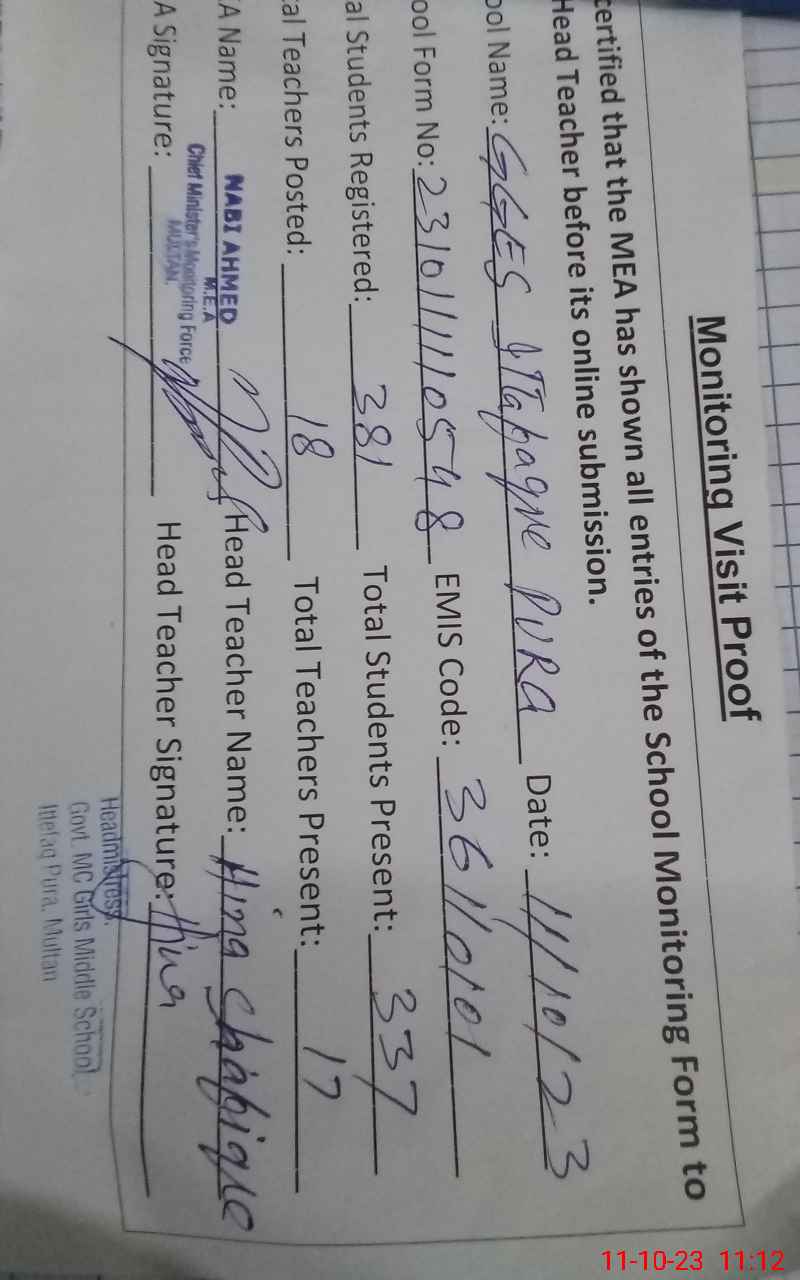 Monitoring Visit Proof
certified that the MEA has shown all entries of the School Monitoring Form to
Head Teacher before its online submission.
ool Name: GGES Ittafaque PURA Date: 11/10/23
ool Form No: 23101111110548 EMIS Code: 36110101
al Students Registered: 381 Total Students Present: 337
al Teachers Posted: 18 Total Teachers Present: 17
A Name: NABI AHMED Head Teacher Name: Hina
M.E.A
Chief Minister's Monitoring Force
MULTAN.
A Signature: Head Teacher Signature: Hina
Headmistress,
Govt. MC Girls Middle School
Ittefaq Pura, Multan
11-10-23 11:12